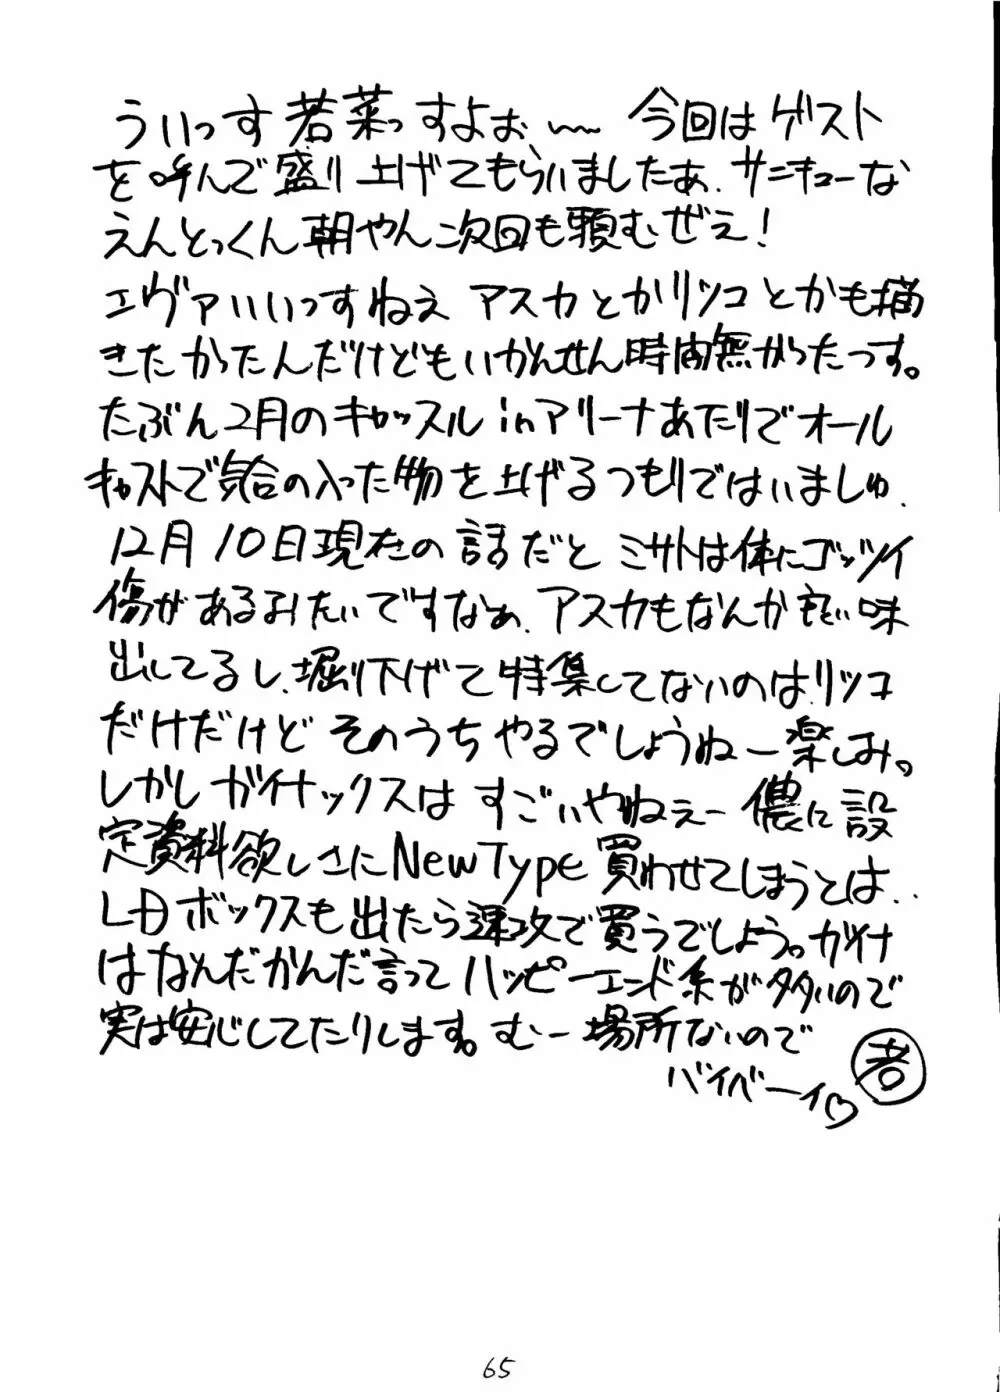 ういっす若菜っすよぉ、〜〜 今回はゲスト
を呼んで盛り上げてもらいましたぁ、サンキューな
えんとっくん朝やん次回も頼むぜえ!
エヴァいいっすねえ アスカとかリツコとかも描
きたかったんだけどもいかんせん時間無かったっす。
たぶん2月のキャッスルinアリーナあたりでオール
キャストで気合の入った物を上げるつもりではいましゅ.
12月10日現在の話だと ミサトは体にゴッツイ
傷があるみたいですなぁ、アスカもなんかもい味
出してるし、堀り下げて特集してないのはリツコ
だけだけど そのうちやるでしょうねー楽しみ。
しかしガイナックスは すごいやねぇー 儂に設
定資料欲しさにNewType買わせてしまうとは..
LDボックスも出たら速攻で買うでしょう。ガイナ
はなんだかんだ言ってハッピーエンド系が多いので
実は安心してたりします。むー場所ないので
バイベーイ♡ 若
65